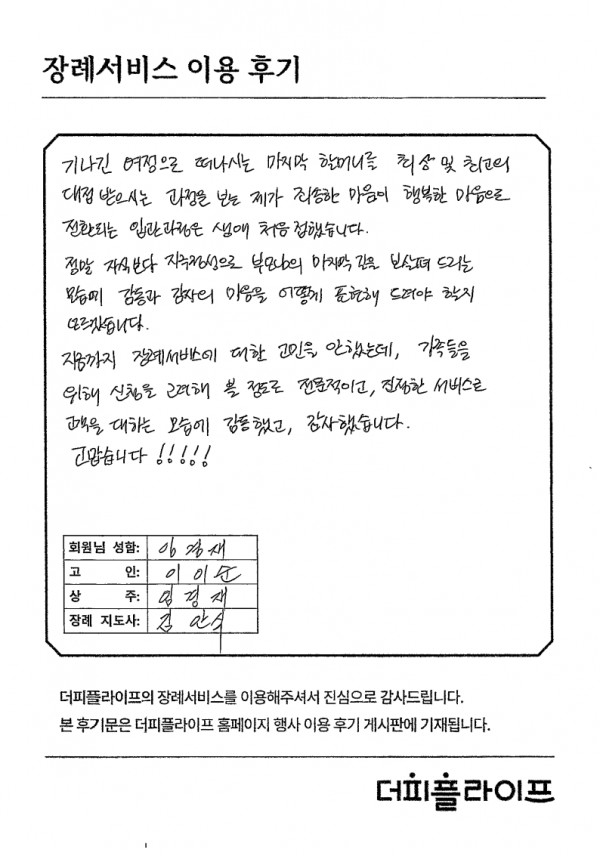 장례서비스 이용 후기
기나긴 여정으로 떠나시는 마지막 할머니를 최상 및 최고의
대접 받으시는 과정을 보는 제가 죄송한 마음이 행복한 마음으로
전환되는 입관과정은 생애 처음 접했습니다.
정말 자식보다 지극정성으로 부모님의 마지막 길을 보살펴 드리는
모습에 감동과 감사의 마음을 어떻게 표현해 드려야 할지
모르겠습니다.
지금까지 장례서비스에 대한 고민을 안했는데, 가족들을
위해 신청을 고려해 볼 정도로 전문적이고, 진정한 서비스로
고객을 대하는 모습에 감동했고, 감사했습니다.
고맙습니다 !!!!!
회원님 성함: 경재
고 인: 이이순
상 주: 임경재
장례 지도사: 김만식
더피플라이프의 장례서비스를 이용해주셔서 진심으로 감사드립니다.
본 후기문은 더피플라이프 홈페이지 행사 이용 후기 게시판에 기재됩니다.
더피플라이프